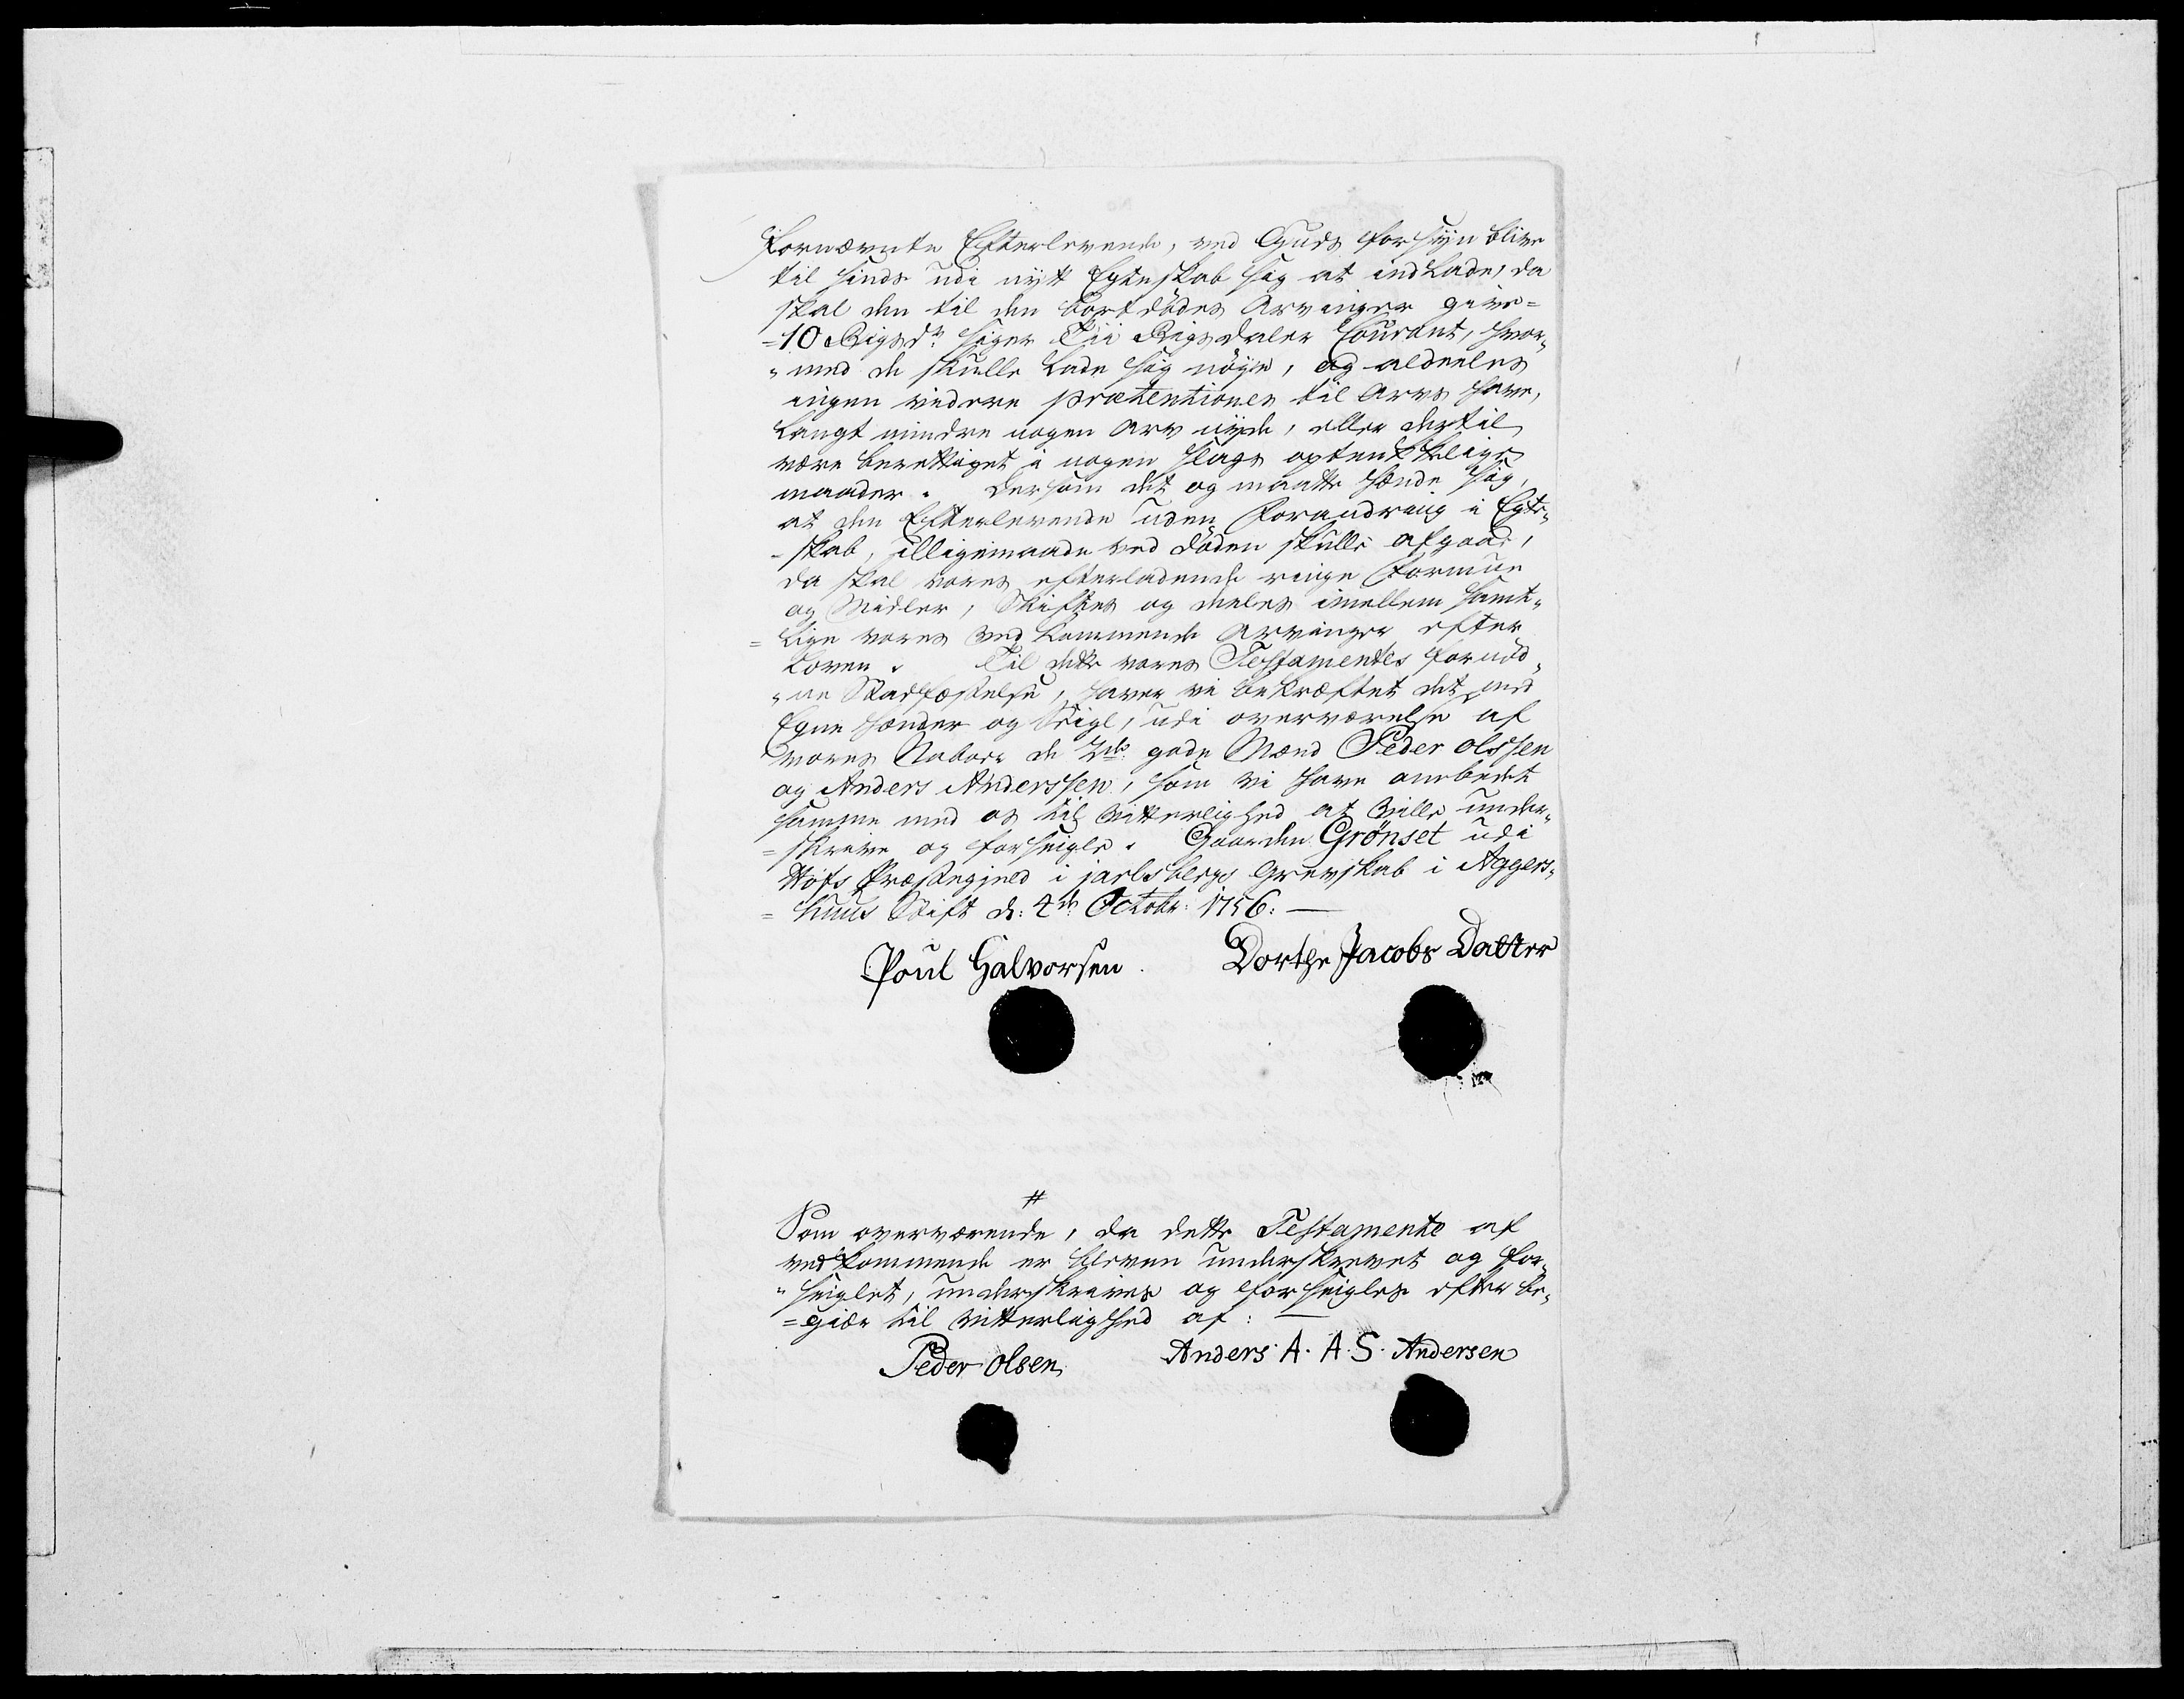 fornævnte Efterlevende, ved Guds forsyn blive
til sinds udi nytt Egteskab sig at indLade, da
skal den til den bortdødes Arvinger give=
=10 Rigsdr siger Tii Rigsdaler Courant, hvor„
„med de skulle Lade sig nöye, og aldeeles
ingen videre prætentioner til Arv have,
Langt mindre nogen Arv nyde, eller dertil
være berettiget i nogen slags optenkkelige
maader. Dersom det og maatte hænde sig,
at den Efterlevende uden forandring i Egte„
-skab, illigemaade ved döden skulle afgaae,
da skal vores efterladende ringe formue
og Midler, Skiftes og deeles imellem samt„
=Lige vores vedkommende Arvinger efter
Loven. Til dette vores Testamentes fornöd„
„ne Stadfæstelse, haver vi bekræftet det med
Egne hænder og Seigl, udi overværelse af
vores Naboer de 2de gode Mænd Peder olssen
og Anders Anderssen, som vi have ombedet
samme med os til Vitterlighed at ville under„
=skrive og forseigle. Gaarden Grönset udi
Hofs Præstegjeld i jarlsbergs Grevskab i Aggers„
=huus Stift d: 4de Octobr: 1756:
Poul Halvorsen. Dorthe Jacobs Datter
#
Som overværende, da dette Testamente af
vedkommende er bleven underskrevet og for„
„seiglet, underskrives og forseigles efter be„
=giær til vitterlighed af:
Peder olsen Anders A. A. S. Andersen